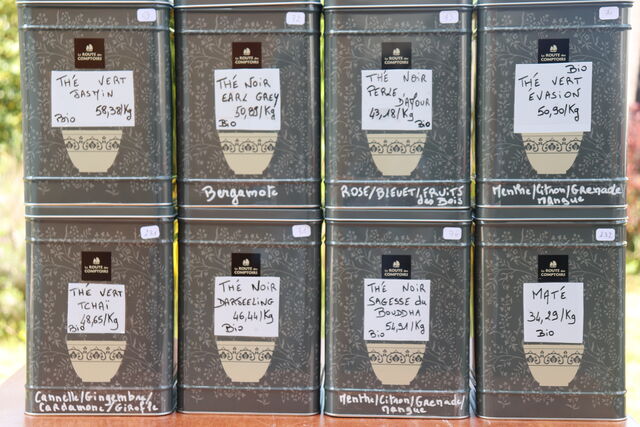 La ROUTE des
COMPTOIRS
THÉ VERT
JASMIN
58,38/Kg
Bio
La ROUTE des
COMPTOIRS
THÉ NOIR
EARL GREY
Bio
Bergamote
La ROUTE des
COMPTOIRS
THÉ NOIR
PERLE
D'AZUR
43,18/Kg
Bio
ROSE/BLEUET/FRUITS
des Bois
La ROUTE des
COMPTOIRS
Bio
THÉ VERT
ÉVASION
50,90/Kg
Menthe/Citron/Grenade
Mangue
La ROUTE des
COMPTOIRS
THÉ VERT
TCHAÏ
48,65/Kg
Bio
Cannelle/Gingembre/
Cardamome/Girofle
La ROUTE des
COMPTOIRS
THÉ NOIR
DARJEELING
46,44/Kg
Bio
La ROUTE des
COMPTOIRS
THÉ NOIR
SAGESSE du
BOUDDHA
54,91/Kg
Bio
Menthe/Citron/Grenade/
Mangue
232
La ROUTE des
COMPTOIRS
MATÉ
34,29/Kg
Bio